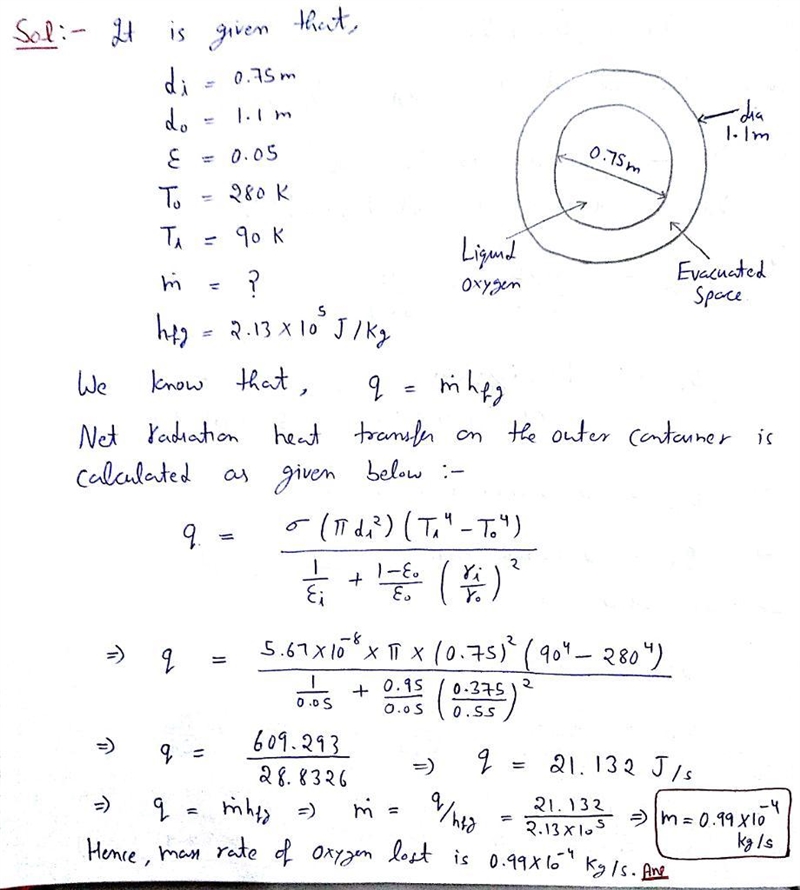 Sol:- It is given that,
di = 0.75m
do = 1.1 m
ε = 0.05
To = 280 K
Ti = 90 K
ṁ = ?
hfg = 2.13 × 10^5 J/Kg
dia
1.1m
0.75m
Liquid
oxygen
Evacuated
Space
We know that, q = ṁhfg
Net radiation heat transfer on the outer container is
calculated as given below :-
q = σ (π di²) (Ti⁴ - To⁴) / (1/εi + (1-εo)/εo (ri/ro)²)
⇒ q = 5.67×10^-8 × π × (0.75)² (90⁴ - 280⁴) / (1/0.05 + 0.95/0.05 (0.375/0.55)²)
⇒ q = 609.293/28.8326 ⇒ q = 21.132 J/s
⇒ q = ṁhfg ⇒ ṁ = q/hfg = 21.132/2.13×10^5 ⇒ m = 0.99×10^-4 kg/s
Hence, mass rate of oxygen lost is 0.99×10^-4 Kg/s. Ans